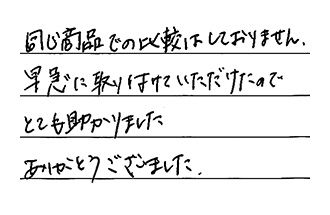 同じ商品での比較はしておりません.
早急に取り付けていただけたので
とても助かりました
ありがとうございました.